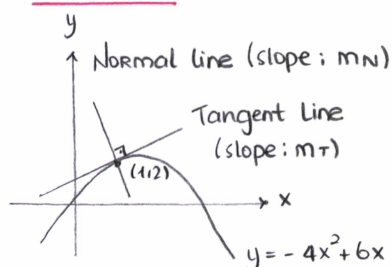 y
Normal line (slope: mN)
Tangent Line
(slope: mT)
(1,2)
x
y = -4x²+6x